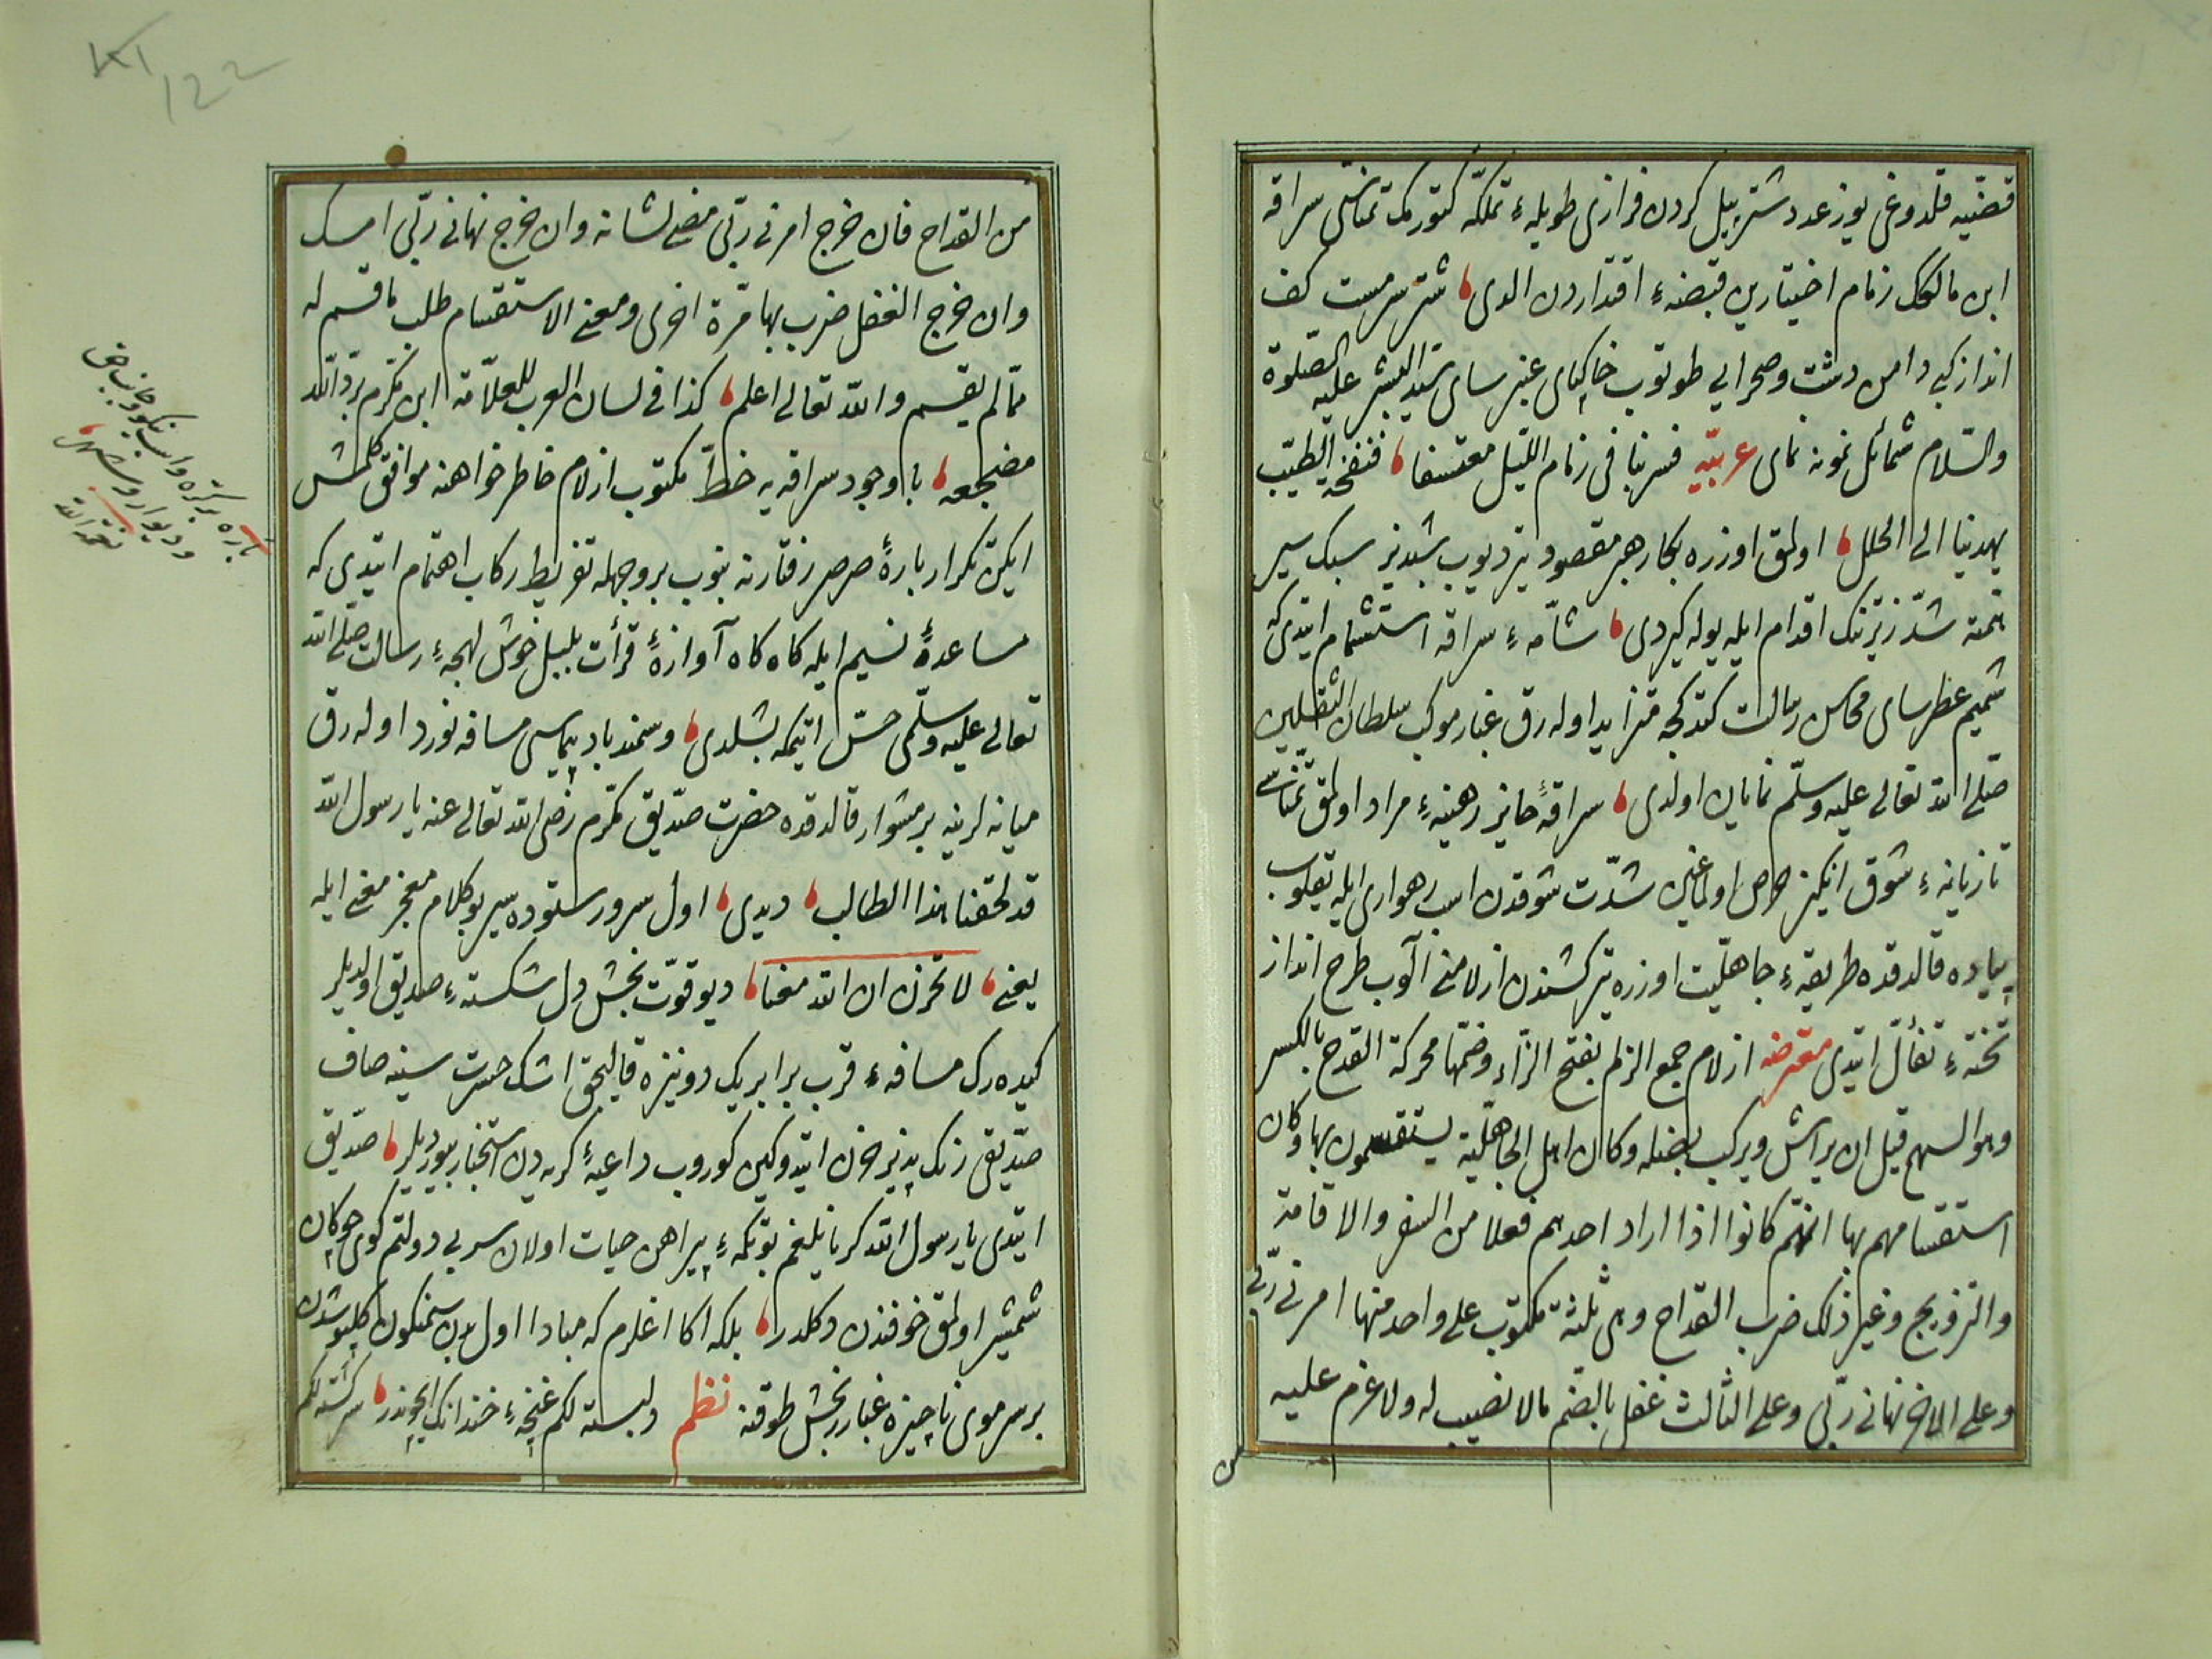 قضيّيه قلدوغی یوز عدد شتر بیل کردن فرازی طویله‌ء تملّكه كتورمك تمنّاسی سراقه
ابن مالكك زمام اختیارین قبضه‌ء اقتداردن الدی شتر سرمست كف
انداز كبی دامن دشت وصحرایی طوتوب خاكپای عنبر سای سیّد البشر علیه الصلوة
والسّلام شمائل نمونه نمای عربیّه فسر بنا فی زمام اللیل معتسفا فنفخة الطیب
یهدینا الی الحلل اولمق اوزره بخار هبر مقصود تیز دیوب شبدیز سبك سیر
همّته شدّ زیرتنك اقدام ایله یوله كیردی شامّه‌ء سراقه استشمام ایتدی كه
شمیم عطر سای محاسن رسالت كتدكجه متزاید اوله رق غبار موكب سلطان الثقلین
صلّی الله تعالی علیه وسلّم نمایان اولدی سراقه‌ٔ حایز رهینه‌ء مراد اولمق تمنّاسی
تازیانه‌ء شوق انكیز حرص اولماغین شدّت شوقدن اسب رهواری ایله یقلوب
پیاده قالدقده طریقه‌ء جاهلیّت اوزره تیركشندن ازلامنی آلوب طرح انداز
تخته‌ء تفأل ایتدی معترضه ازلام جمع الزلم بفتح الزاء وضمّها محركة القدح بالكسر
وهو السهم قبل ان یراش ویركب نصله وكان اهل الجاهلیّة یستقسمون بها وكان
استقسامهم بها انهّم كانوا اذا اراد احدهم فعلا من السفر والاقامة
والتزویج وغیر ذلك ضرب القداح وهی ثلثة مكتوب علی واحد منها امرنی ربّی
وعلی الاخر نهانی ربّی وعلی الثالث غفل بالضّم مالا نصیب له ولا غرم علیه
من
من القداح فان خرج امرنی ربّی مضی لشانه وان خرج نهانی ربّی امسك
وان خرج الغفل ضرب بها مّرة اخری ومعنی الاستقسام طلب ما قسم له
ممّا لم یقسم والله تعالی اعلم كذا فی لسان العرب للعلاّمة ابن مكرم برّد الله
مضجعه با وجود سراقه یه خطّ مكتوب ازلام خاطر خواهنه موافق كلمش
ایكن تكرار باره‌ٔ صرصر رفتارنه بنوب بر وجهله تفریط ركاب اهتمام ایتدی كه
مساعده‌ٔ نسیم ایله كاه كاه آوازه‌ٔ قرأت بلبل خوش لهجه‌ء رسالت صلّی الله
تعالی علیه وسلّمی حسّ ایتمكه بشلدی وسمند باد پیماسی مسافه نورد اوله رق
میانه لرینه بر مشوار قالدقده حضرت صدّیق مكّرم رضی الله تعالی عنه یا رسول الله
قد لحقنا هذا الطالب دیدی اول سرور ستوده سیر بو كلام معجز معنی ایله
یعنی لا تحزن ان الله معنا دیو قوّت بخش دل شكسته‌ء صدّیق اولدیلر
كیده رك مسافه‌ء قرب برابر یك دو نیزه قالیجق اشك حسرت سینه صاف
صدّیقی رنك پذیر خون ایتدوكین كوروب داعیه‌ٔ كریه دن استخبار بیوردیلر صدّیق
ایتدی یا رسول الله كریانلیغم بو تكمه‌ء پیراهن حیات اولان سر بی دولتم كوی چوكان
شمشیر اولمق خوفندن دكلدر بلكه اكا اغلرم كه مبادا اول بدن سمنكون كلپوشدن
بر سر موی ناچیزه غبار رنجش طوقنه نظم دلبسته لكم غنچه‌ء خندانك ایچوندر سركشته لكم
باره برتره واسب نیكو وجانب حق
ودیوار وشهر
نعمة الله
122